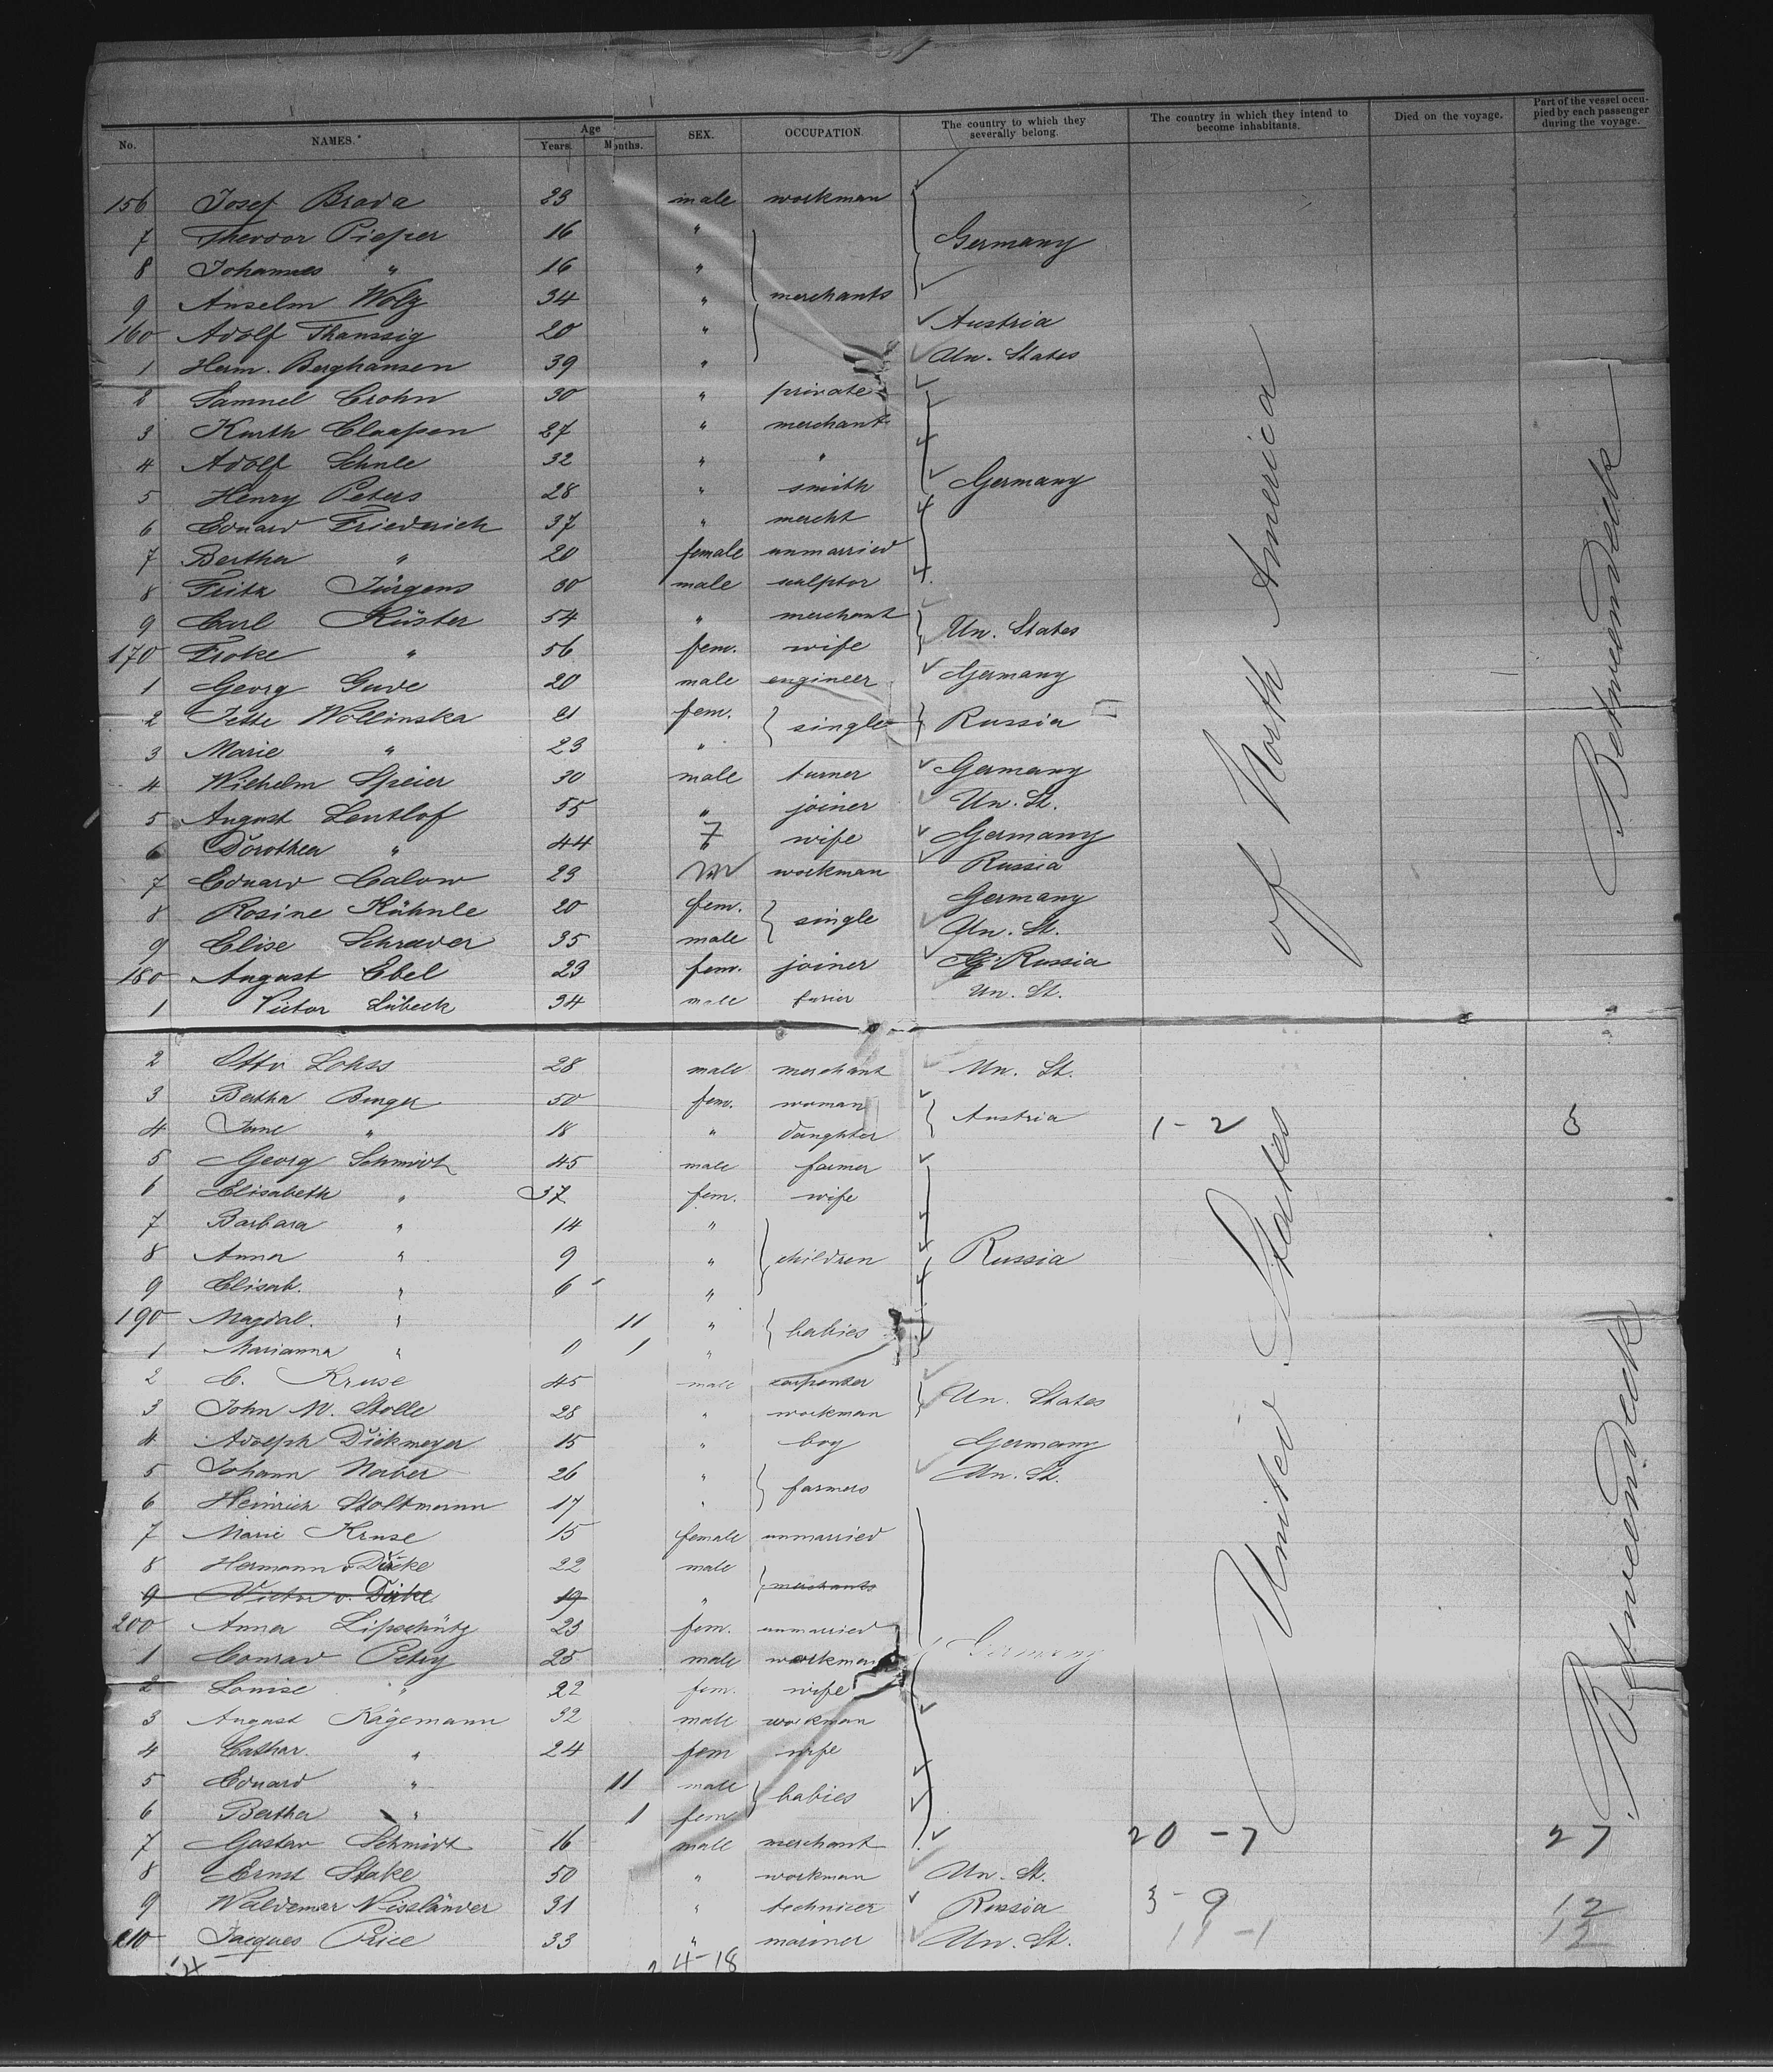 No. NAMES. Age Years. Months. SEX. OCCUPATION. The country to which they severally belong. The country in which they intend to become inhabitants. Died on the voyage. Part of the vessel occupied by each passenger during the voyage.
156 Josef Brada 23 male workman
7 Theodor Pieper 16 "
8 Johannes " 16 " Germany
9 Anselm Wolz 34 " merchants
160 Adolf Thanssig 20 " Austria
1 Herm. Berghansen 39 " Un. States
2 Samuel Crohn 30 " private
3 Kurth Claassen 27 " merchant
4 Adolf Schule 32 " "
5 Henry Peters 28 " smith Germany
6 Eduard Friedrich 37 " mercht
7 Bertha " 20 female unmarried
8 Fritz Jürgens 30 male sculptor
9 Carl Küster 54 " merchant
170 Froke " 56 fem. wife Un. States
1 Georg Gude 20 male engineer Germany
2 Jette Wollinska 21 fem. single Russia
3 Marie " 23 "
4 Wilhelm Speier 30 male turner Germany
5 August Lentlof 55 " joiner Un. St.
6 Dorothea " 44 " wife Germany
7 Eduard Calow 23 M workman Russia
8 Rosine Kühnle 20 fem. single Germany
9 Elise Schrader 35 male Un. St.
180 August Ebel 23 fem. joiner Russia
1 Victor Lübeck 34 male furier Un. St.
2 Otto Lohss 28 male merchant Un. St.
3 Bertha Bunger 50 fem. woman Austria
4 Jane " 18 " daughter 1 - 2
5 Georg Schmidt 45 male farmer
6 Elisabeth " 37 fem. wife
7 Barbara " 14 "
8 Anna " 9 " children Russia
9 Elisab. " 6 "
190 Magdal. " 11 " babies
1 Marianna " 0 1 "
2 C. Kruse 45 male carpenter Un. States
3 John W. Stolle 28 " workman
4 Adolph Dickmeyer 15 " boy Germany
5 Johann Naber 26 " farmers Un. St.
6 Heinrich Stoltmann 17 "
7 Marie Kruse 15 female unmarried
8 Hermann v Dücke 22 male merchants
9 Victor v. Dücke 19 "
200 Anna Lipschütz 23 fem. unmarried
1 Conrad Petry 25 male workman Germany
2 Louise " 22 fem. wife
3 August Kögemann 32 male workman
4 Cathar. " 24 fem wife
5 Eduard " 11 male babies
6 Bertha " 1 fem.
7 Gustav Schmidt 16 male merchant 20 - 7 27
8 Ernst Stake 50 " workman Un. St.
9 Waldemar Nissländer 31 " technicer Russia 3 - 9 12
210 Jacques Price 33 " mariner Un. St. 11 - 1 12
4-18
United States of North America
Between Deck
Between Deck